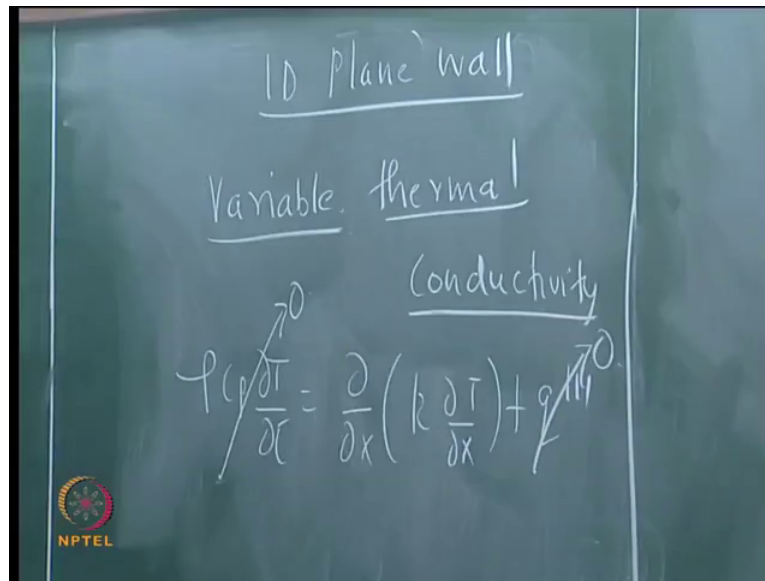 1D Plane wall
Variable thermal
Conductivity
0 0
ρCp ∂T/∂τ = ∂/∂x (k ∂T/∂x) + q'''
NPTEL